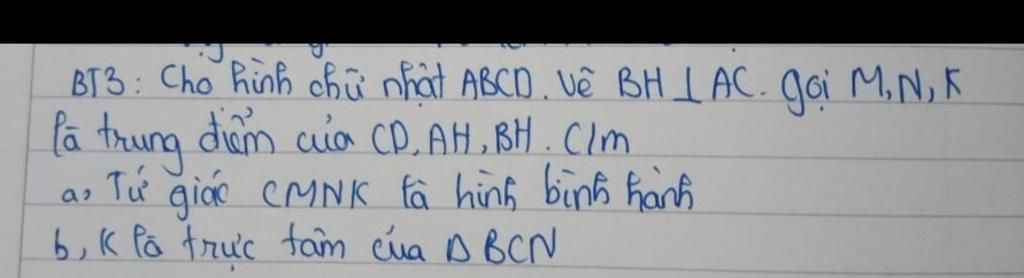 BT3: Cho hình chữ nhật ABCD. Vẽ BH ⊥ AC. gọi M, N, K
là trung điểm của CD, AH, BH. C/m
a, Tứ giác CMNK là hình bình hành
b, K là trực tâm của Δ BCN